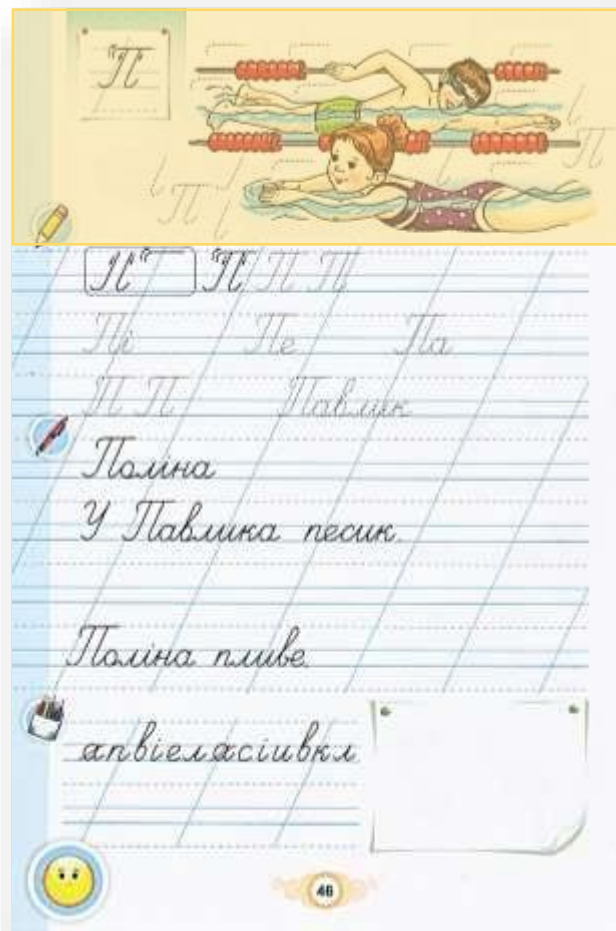 П
П П
П П П П П
Пі Пе Па
П П Павлик
Поліна
У Павлика песик.
Поліна пливе.
апвіеласіивкл
46